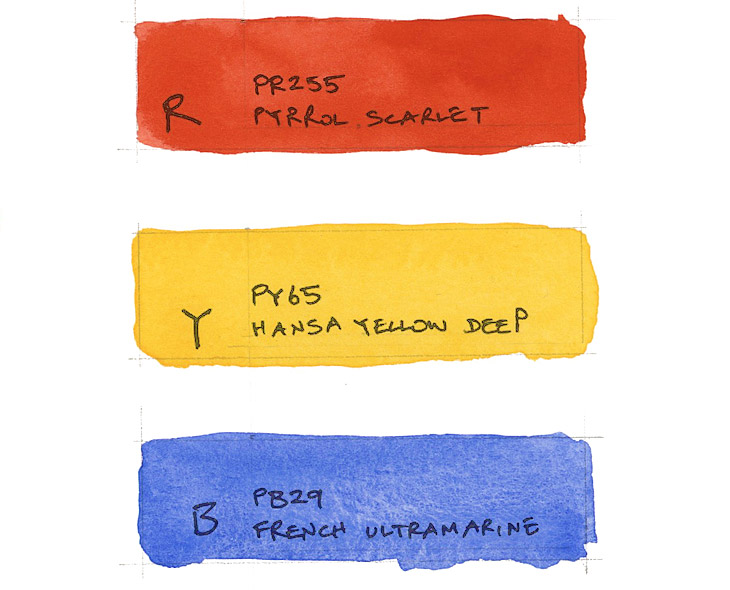 R
PR255
PYRROL SCARLET
Y
PY65
HANSA YELLOW DEEP
B
PB29
FRENCH ULTRAMARINE